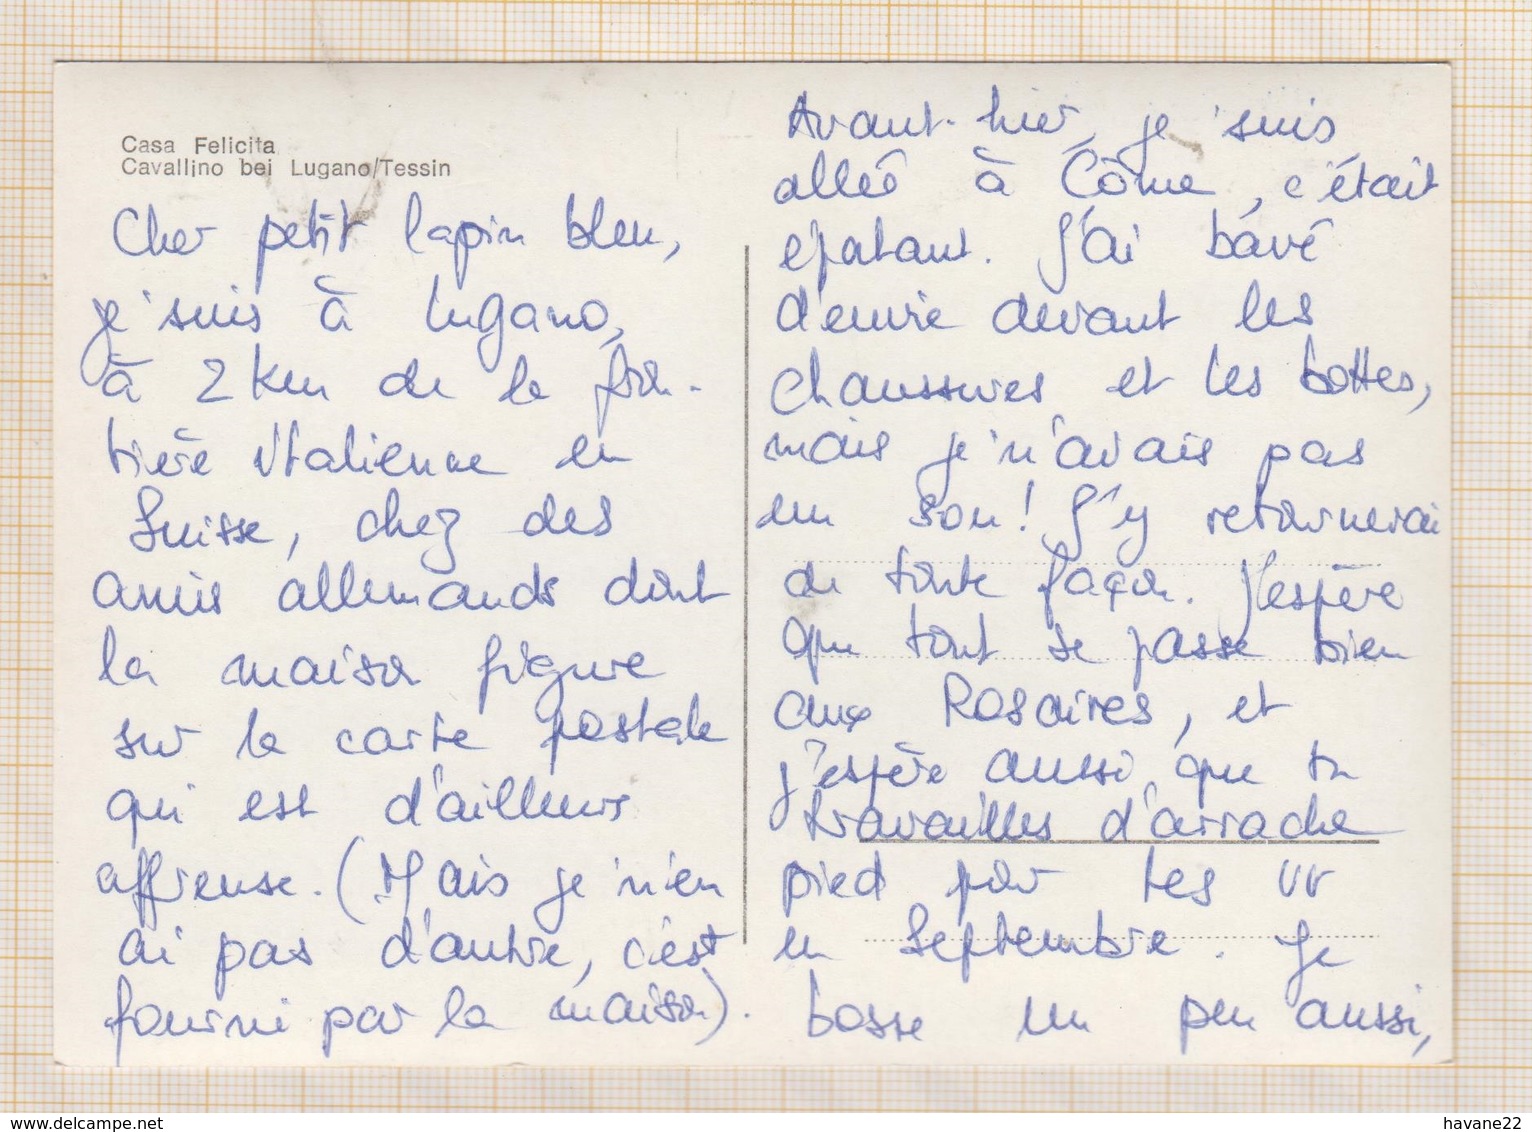 Casa Felicita
Cavallino bei Lugano/Tessin
Cher petit lapin bleu,
je suis à Lugano,
à 2 km de la fron-
tière italienne en
Suisse, chez des
amis allemands dont
la maison figure
sur la carte postale
qui est d'ailleurs
affreuse. (Mais je n'en
ai pas d'autre, c'est
fourni par la maison).
Avant-hier, je suis
allée à Côme, c'était
épatant. J'ai bavé
d'envie devant les
chaussures et les bottes,
mais je n'avais pas
un sou! J'y retournerai
de toute façon. J'espère
que tout se passe bien
aux Rosaires, et
j'espère aussi que tu
travailles d'arrache
pied pour tes uv
en Septembre. Je
bosse un peu aussi,
www.delcampe.net
havane22